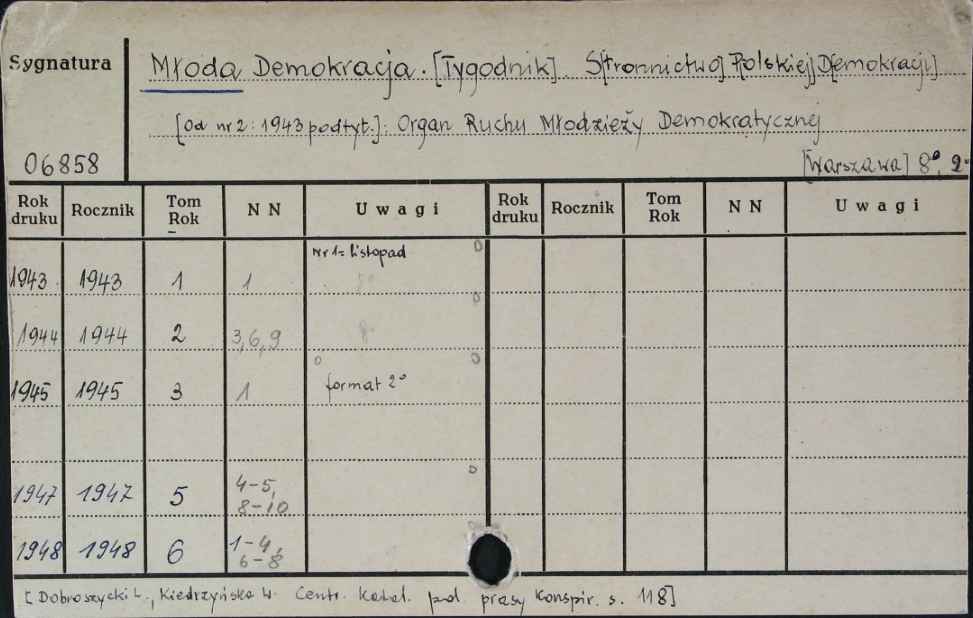 Sygnatura
Młoda Demokracja. [Tygodnik]. S[tronnictwo] P[olskiej] D[emokracji]
[Od nr 2: 1943 podtyt.]: Organ Ruchu Młodzieży Demokratycznej
06858 [Warszawa] 8°, 2°
Rok druku Rocznik Tom Rok N N Uwagi Rok druku Rocznik Tom Rok N N Uwagi
1943 1943 1 1 Nr 1= listopad
1944 1944 2 3,6,9 8°
1945 1945 3 1 format 2°
1947 1947 5 4-5, 8-10
1948 1948 6 1-4, 6-8
[Dobroszycki L., Kiedrzyńska W. Centr. katal. pol. prasy konspir. s. 118]